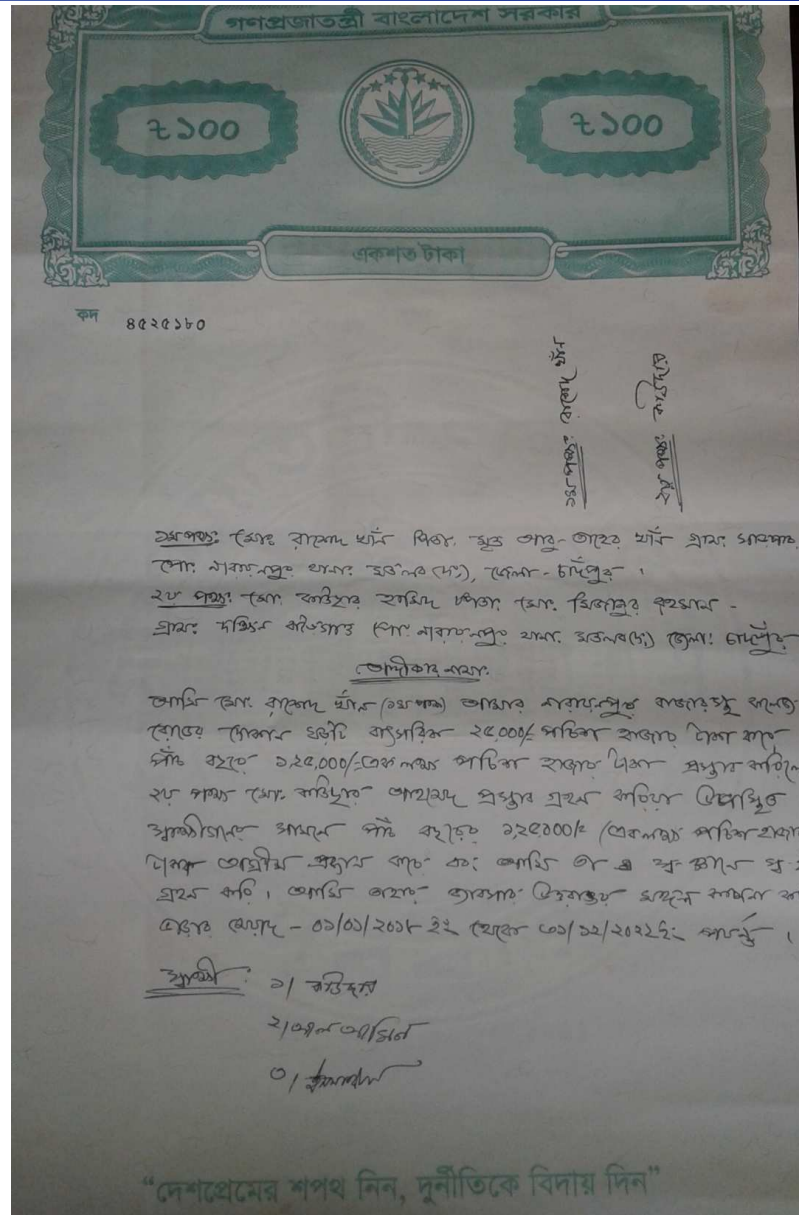 গণপ্রজাতন্ত্রী বাংলাদেশ সরকার
৳১০০ ৳১০০
একশত টাকা
কদ ৪৫২৫১৮০
১ম পক্ষ: রাসেদ খাঁন
২য় পক্ষ:
১ম পক্ষ: মোঃ রাসেদ খাঁন পিতা. মৃত আবু-তাহের খাঁন গ্রাম:
পো: নারায়নপুর থানা: মতলব (দঃ), জেলা - চাঁদপুর ।
২য় পক্ষ: মো. পিতা. মো. মিজানুর রহমান -
গ্রাম: দক্ষিন পো: নারায়নপুর থানা. মতলব(দ:) জেলা: চাঁদপুর
অঙ্গীকার নামা:
আমি মো. রাসেদ খাঁন (১ম পক্ষ) আমার নারায়নপুর বাজারস্থ কলেজ
রোডের দোকান ঘরটি বাৎসরিক ২৫,০০০/- পচিশ হাজার টাকা করে
পাঁচ বছরে ১,২৫,০০০/- এক লক্ষ পচিশ হাজার টাকা প্রস্তাব করিলে
২য় পক্ষ মো. আহমেদ প্রস্তাব গ্রহন করিয়া উপস্থিত
স্বাক্ষীগনের সামনে পাঁচ বছরের ১,২৫০০০/= (একলক্ষ পচিশ হাজা
টাকা অগ্রীম প্রদান করে এবং আমি তা স্ব-জ্ঞানে স্ব
গ্রহন করি । আমি তাহার ব্যবসার উত্তরোত্তর মঙ্গল কামনা ক
ভাড়ার মেয়াদ - ০১/০১/২০১৮ ইং থেকে ৩১/১২/২০২২ইং পর্যন্ত ।
স্বাক্ষী: ১/
২/ আল আমিন
৩/
“দেশপ্রেমের শপথ নিন, দুর্নীতিকে বিদায় দিন”